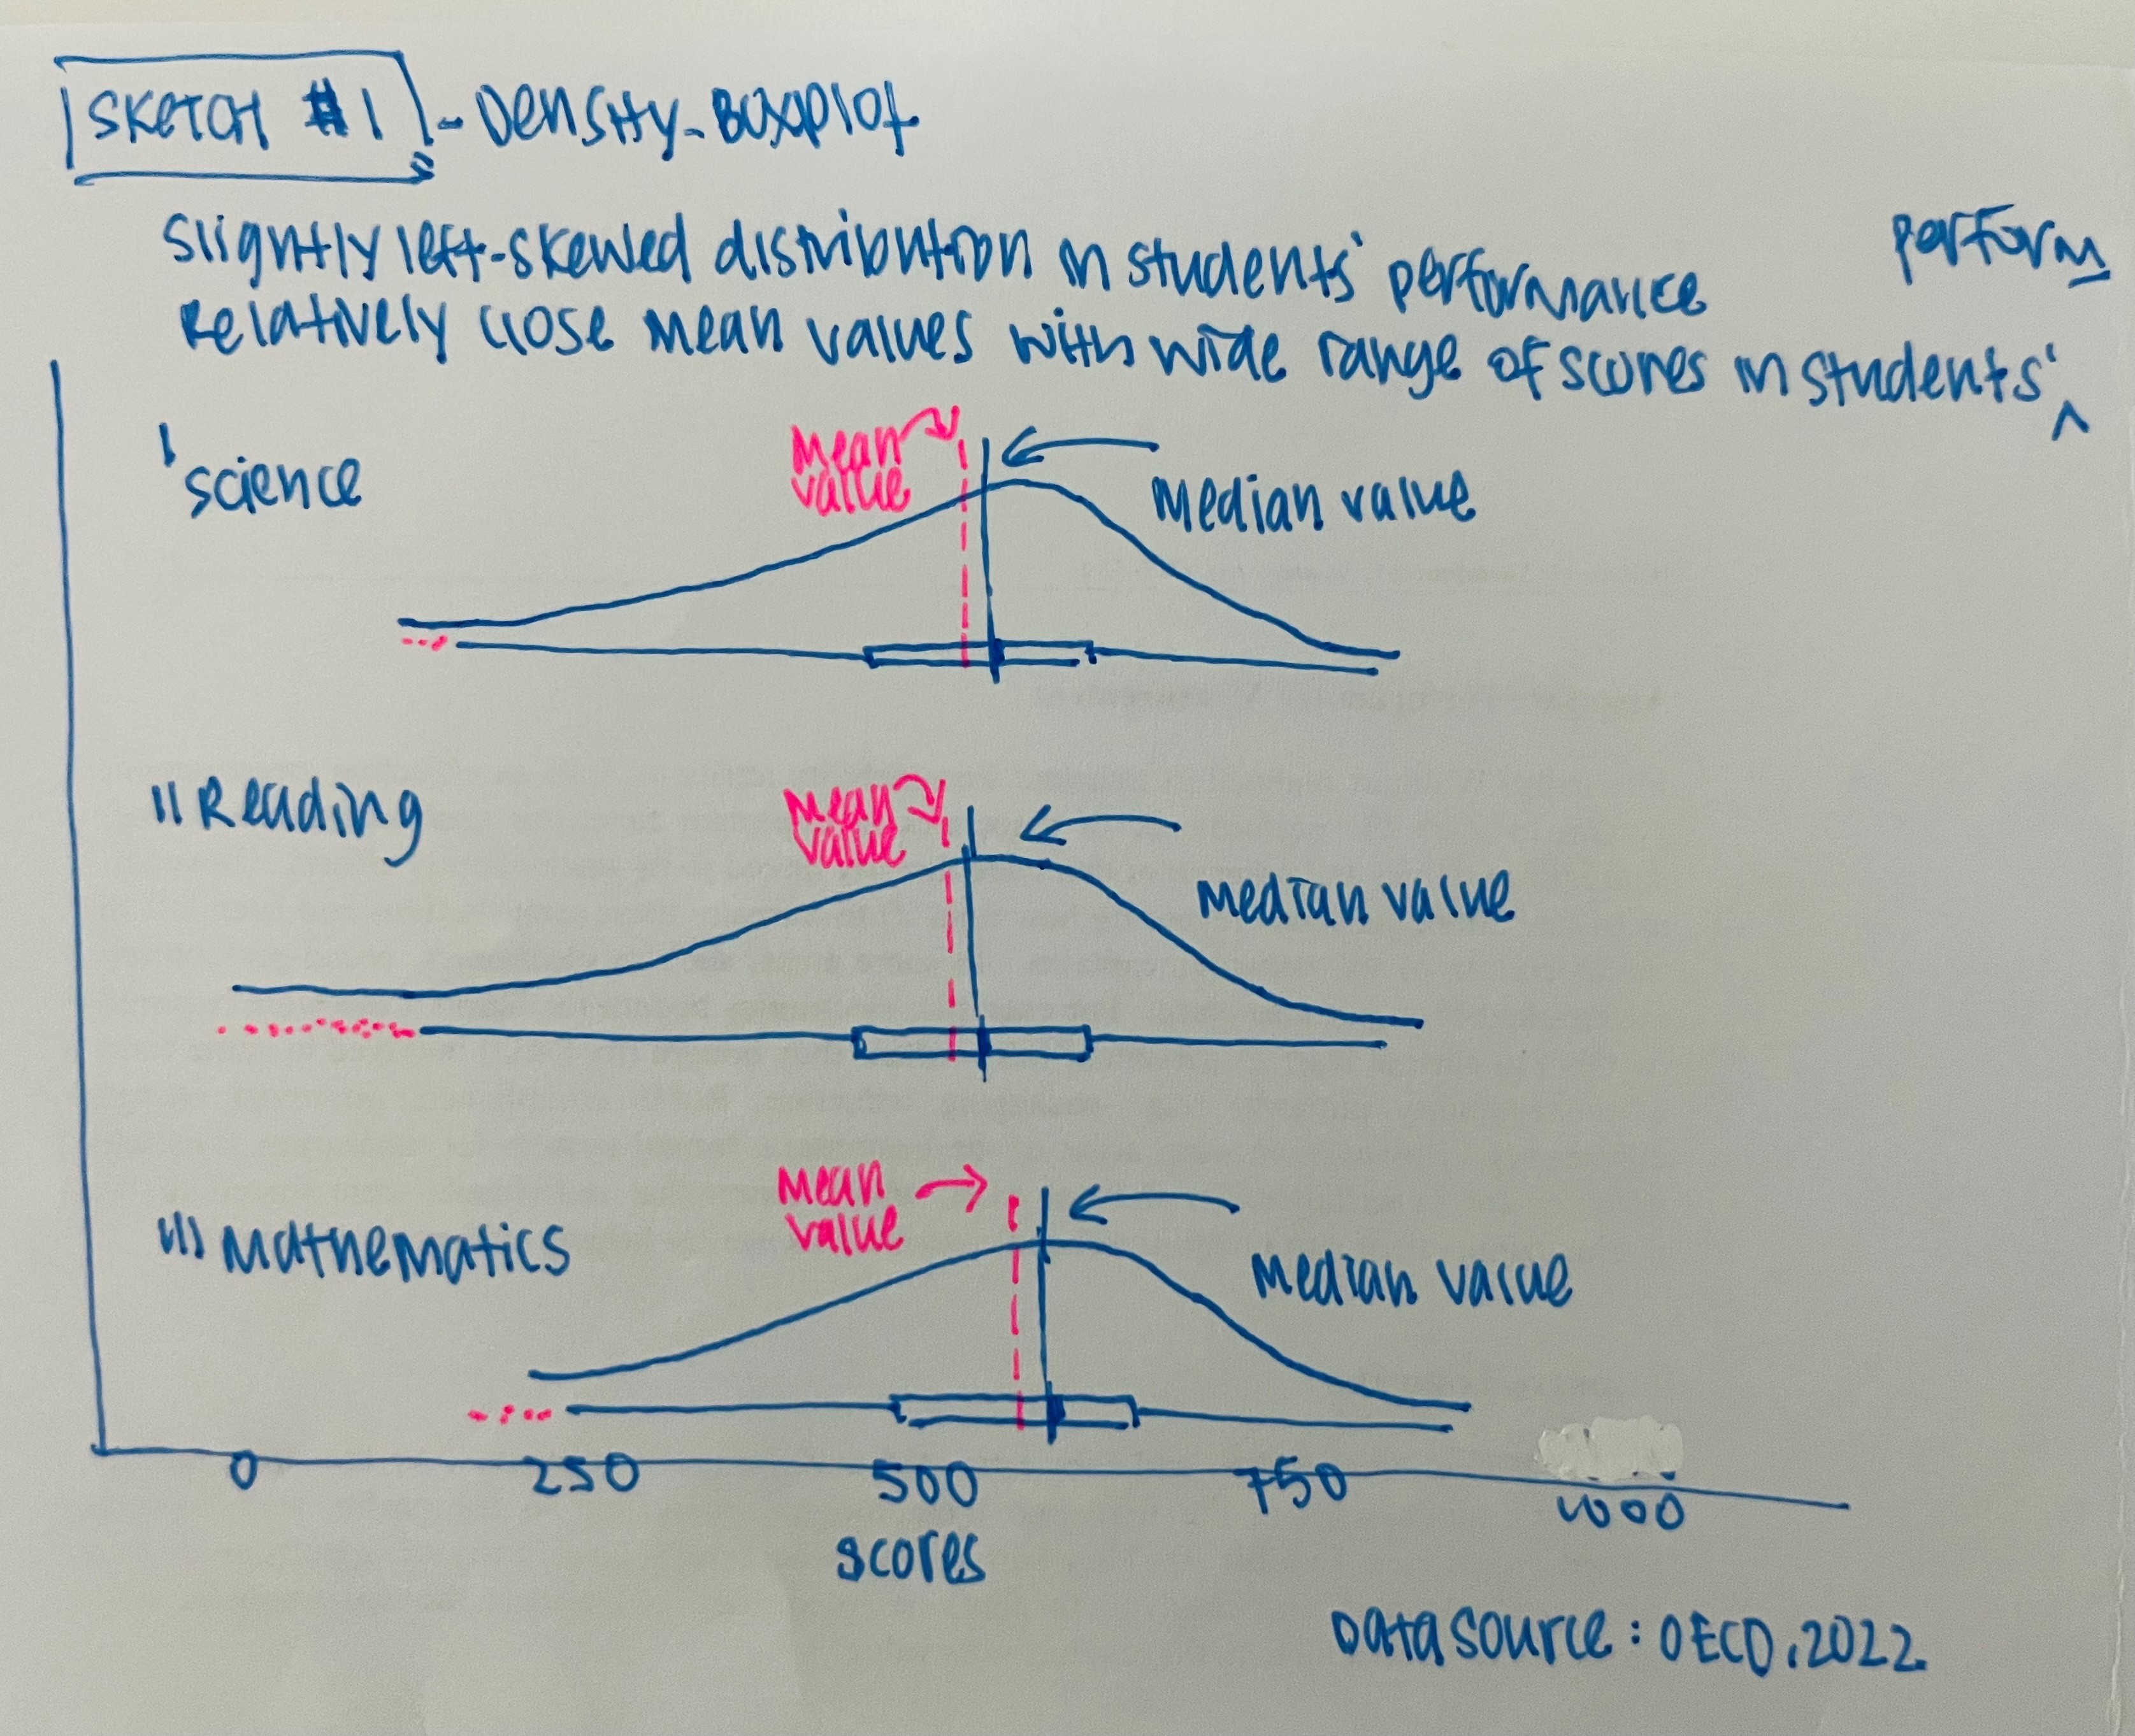 SKETCH #1 - Density-Boxplot
Slightly left-skewed distribution in students' performance
Relatively close mean values with wide range of scores in students' perform
I science
Mean value
Median value
II Reading
Mean value
Median value
III Mathematics
Mean value
Median value
0 250 500 750 1000
scores
Data source: OECD, 2022.